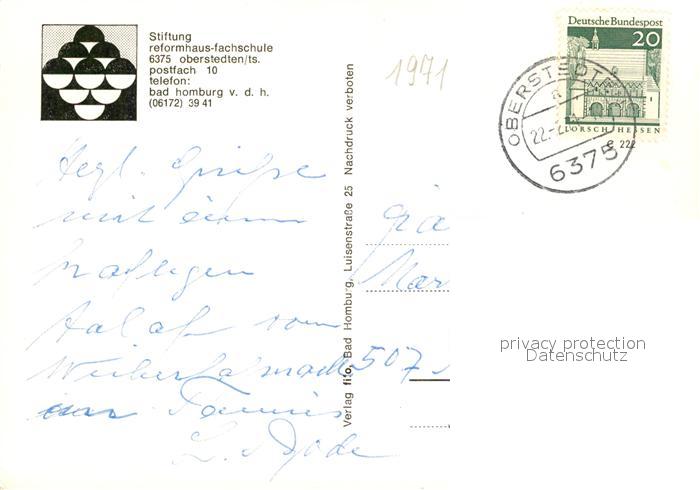 Stiftung
reformhaus-fachschule
6375 oberstedten/ts.
postfach 10
telefon:
bad homburg v. d. h.
(06172) 39 41
Deutsche Bundespost
20
LORSCH HESSEN
OBERSTEDTEN
a
22.-2.
6375
e 222
1971
Herzl. Grüße
mit einem
kräftigen
Aalaf vom
im Taunus
Verlag fito, Bad Homburg, Luisenstraße 25 Nachdruck verboten
Mar
507
privacy protection
Datenschutz